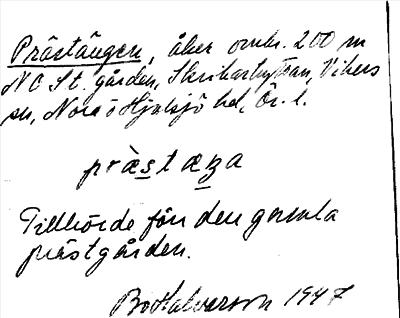 Prästängen, åker omkr. 200 m
NO St. gården, Skrikarhyttan, Vikers
sn, Nora o Hjulsjö hd, Ör. l.
præstæŋa
Tillhörde förr den gamla
prästgården.
Bo Halvarson 1947